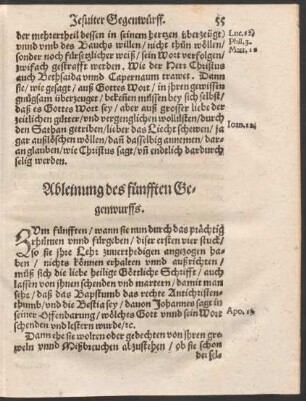 Jesuiter Gegenwürff. 55
der mehrertheil dessen in seinem hertzen überzeügt/
vnnd vmb des Bauchs willen/ nicht thůn wöllen/
sonder noch fürsetzlicher weiß/ sein Wort verfolgen/
zwifach gestrafft werden. Wie der Herr Christus
auch Bethsaida vnnd Capernaum trawet. Dann
sie/ wie gesagt/ auß Gottes Wort/ in ihren gewissen
gnůgsam überzeuget/ bekennen müssen bey sich selbst/
daß es Gottes Wort sey/ aber auß grosser liebe der
zeitlichen gůter/ vnd vergenglichen wollüsten/ durch
den Sathan getriben/ lieber das Liecht schewen/ ja
gar außlöschen wöllen/ dañ dasselbig annemen/ dar-
an glauben/ wie Christus sagt/ vñ endlich dardurch
selig werden.
Luc. 12
Phil. 3.
Matt. 11
Ioan. 12
Ableinung des fünfften Ge-
genwurffs.
Zum fünfften/ wann sie nun durch das prächtig
rhümen vnnd fürgeben/ diser ersten vier stuck/
so sie jhre Lehr zuuerthedigen angezogen ha-
ben/ nichts können erhalten vnnd außrichten/
můß sich die liebe heilige Göttliche Schrifft/ auch
lassen von jhnen schenden vnd martern/ damit man
sehe/ daß das Bapstumb das rechte Antichristen-
thumb/ vnd die Bestia sey/ dauon Johannes sagt in
seiner Offenbarung/ wölches Gott vnnd sein Wort
schenden vnd lestern wurde/ ec.
Apo. 13
Dann ehe sie wolten oder gedechten von jhren gre-
weln vnnd Mißbreuchen abzustehen/ ob sie schon
der sels